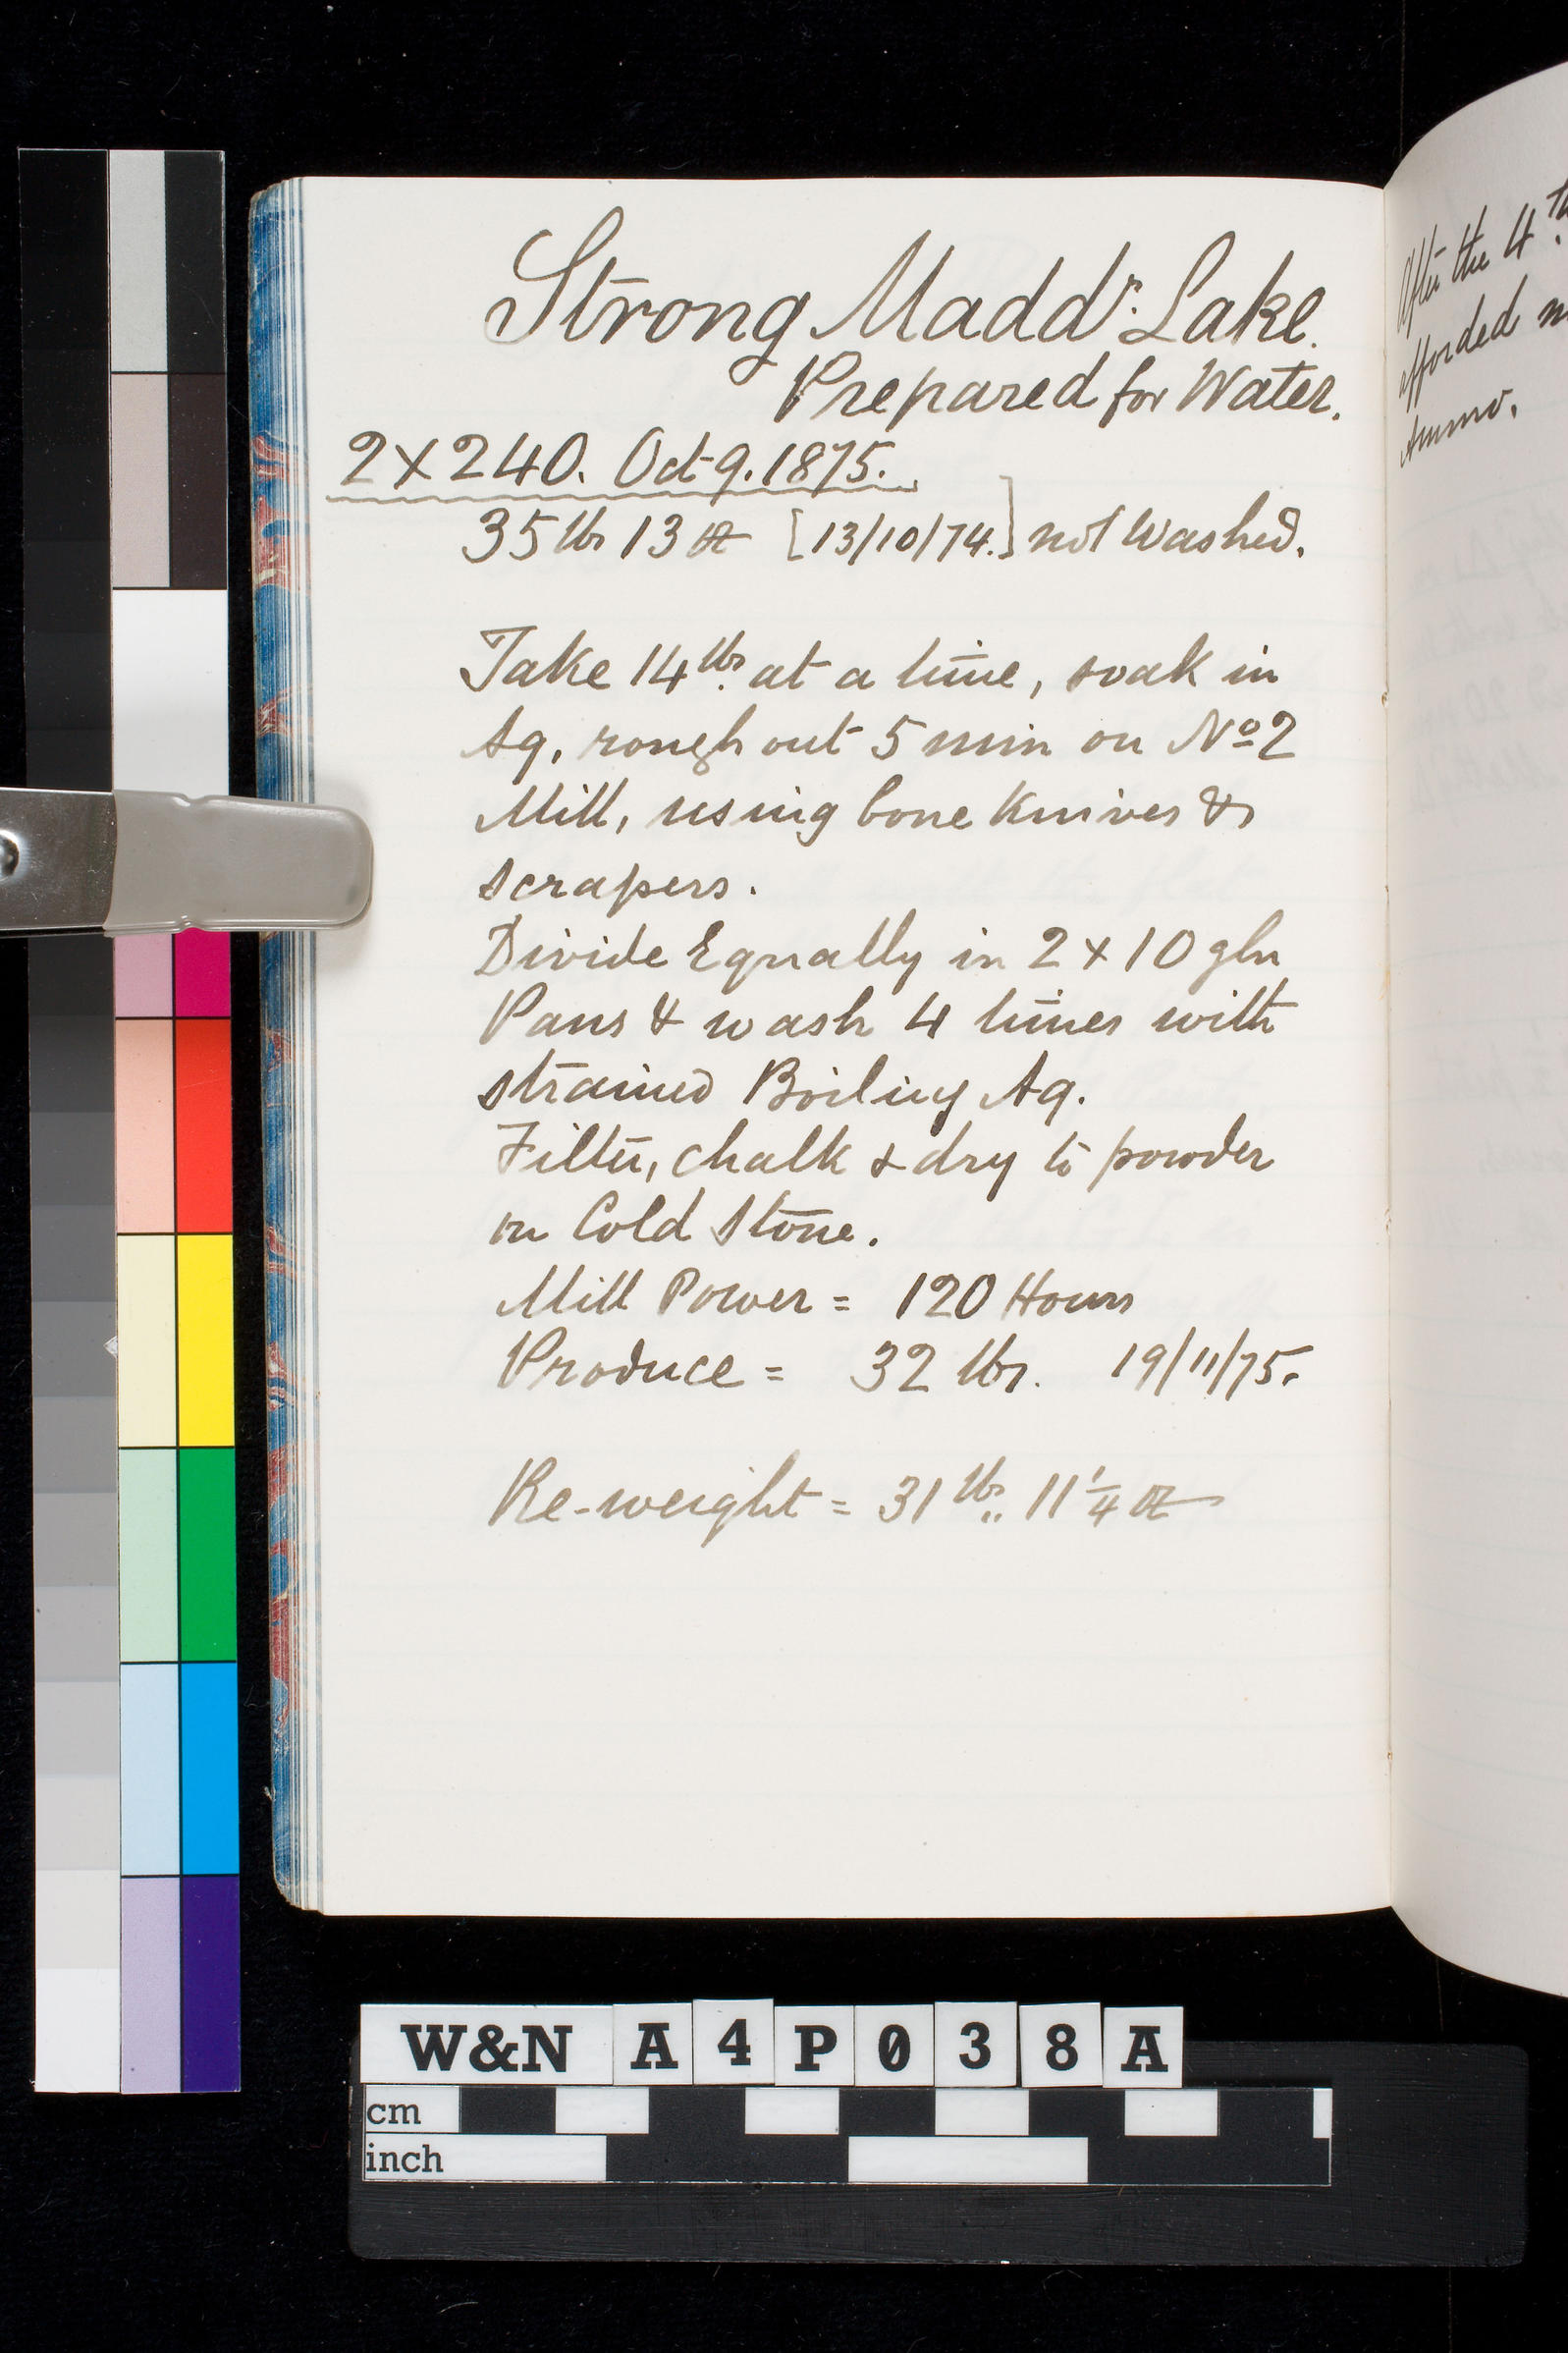 Strong Madd^r. Lake.
Prepared for Water.
2 x 240. Oct 9. 1875.
35 lbs 13 oz [13/10/74.] not Washed.
Take 14 lbs. at a time, soak in
Aq, rough out 5 min on Nº 2
Mill, using bone Knives &
scrapers.
Divide Equally in 2 x 10 gln
Pans & wash 4 times with
strained Boiling Aq.
Filter, chalk & dry to powder
on Cold Stone.
Mill Power = 120 Hours
Produce = 32 lbs. 19/11/75.
Re-weight = 31 lbs.. 11 1/4 oz
After the 4th
afforded
Ammo.
W&N A4P038A
cm
inch